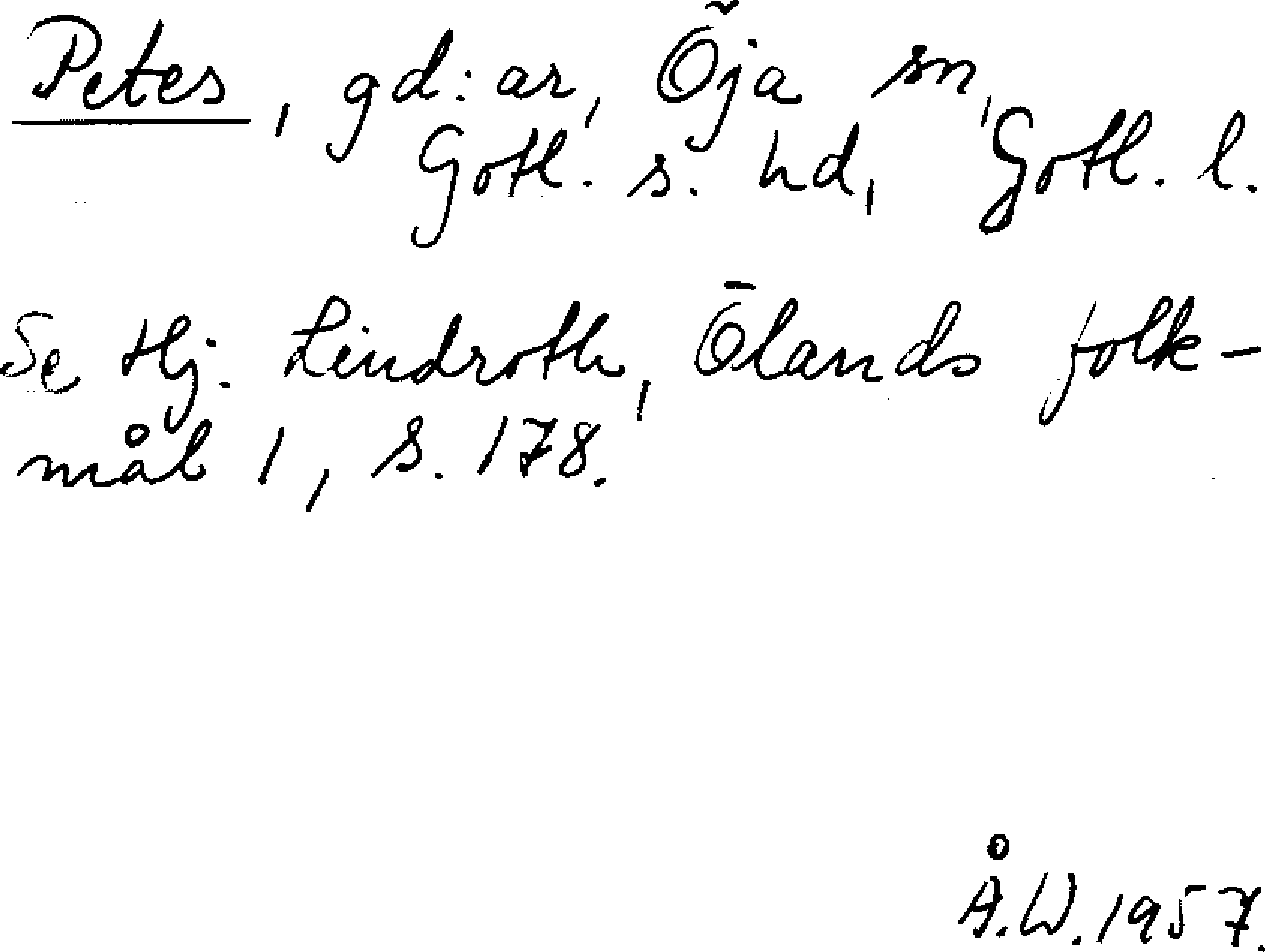 Petes, gd:ar, Öja sn,
Gotl. s. hd, Gotl. l.
Se Hj. Lindroth, Ölands folk-
mål 1, s. 178.
Å.W. 1957.